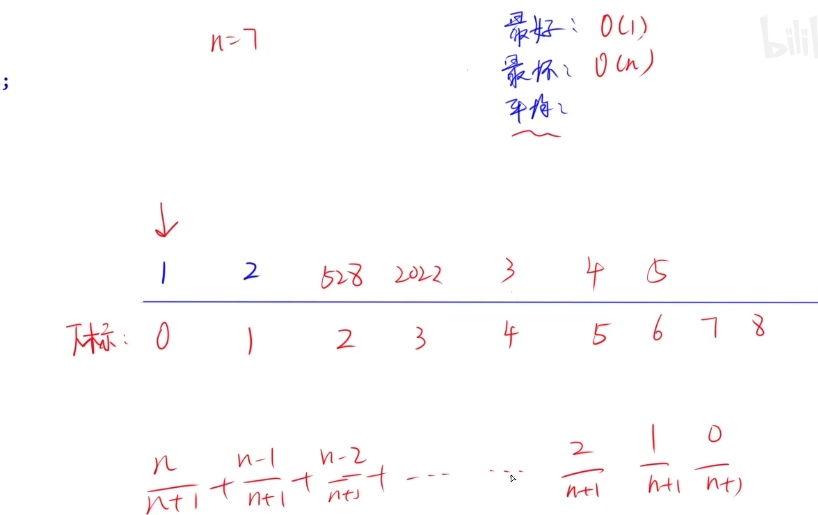 n=7
最好: O(1)
bilil
最坏: O(n)
;
平均:
1 2 528 2022 3 4 5
下标: 0 1 2 3 4 5 6 7 8
n/n+1 + n-1/n+1 + n-2/n+1 + ... ... 2/n+1 1/n+1 0/n+1